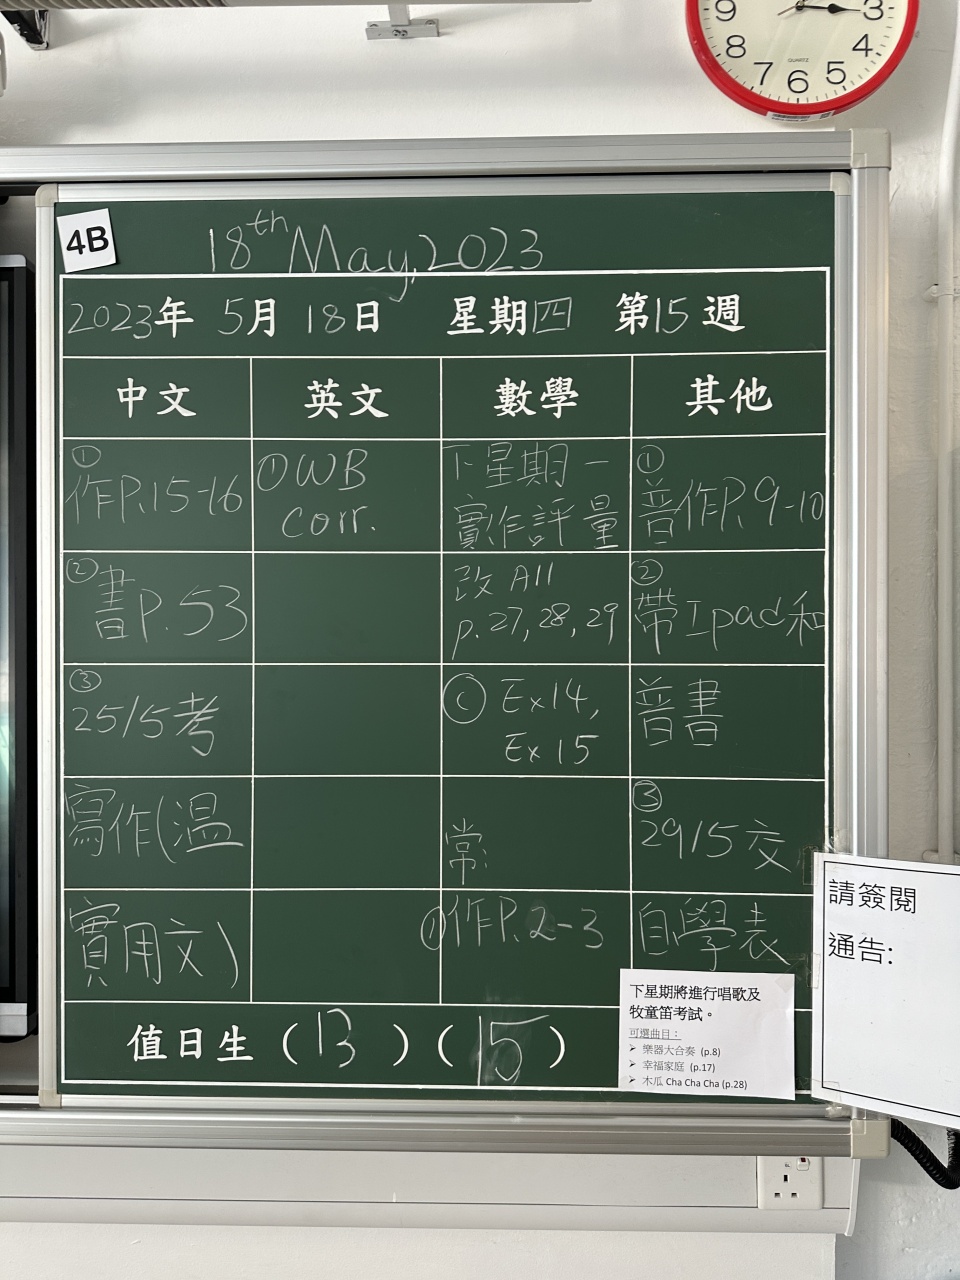 9 3
8 4
7 6 5
QUARTZ
4B
18th May, 2023
2023年 5月 18日 星期四 第15週
中文 英文 數學 其他
①
作P.15-16
①WB
corr.
下星期一
實作評量
①
普作P.9-10
②
書P.53
改 All
p.27,28,29
②
帶Ipad和
③
25/5考
Ⓒ Ex14,
Ex 15
普書
寫作(溫
常:
③
29/5交
實用文)
①作P.2-3
自學表
值日生 (13) (15)
下星期將進行唱歌及
牧童笛考試。
可選曲目：
➢ 樂器大合奏 (p.8)
➢ 幸福家庭 (p.17)
➢ 木瓜 Cha Cha Cha (p.28)
請簽閱
通告: